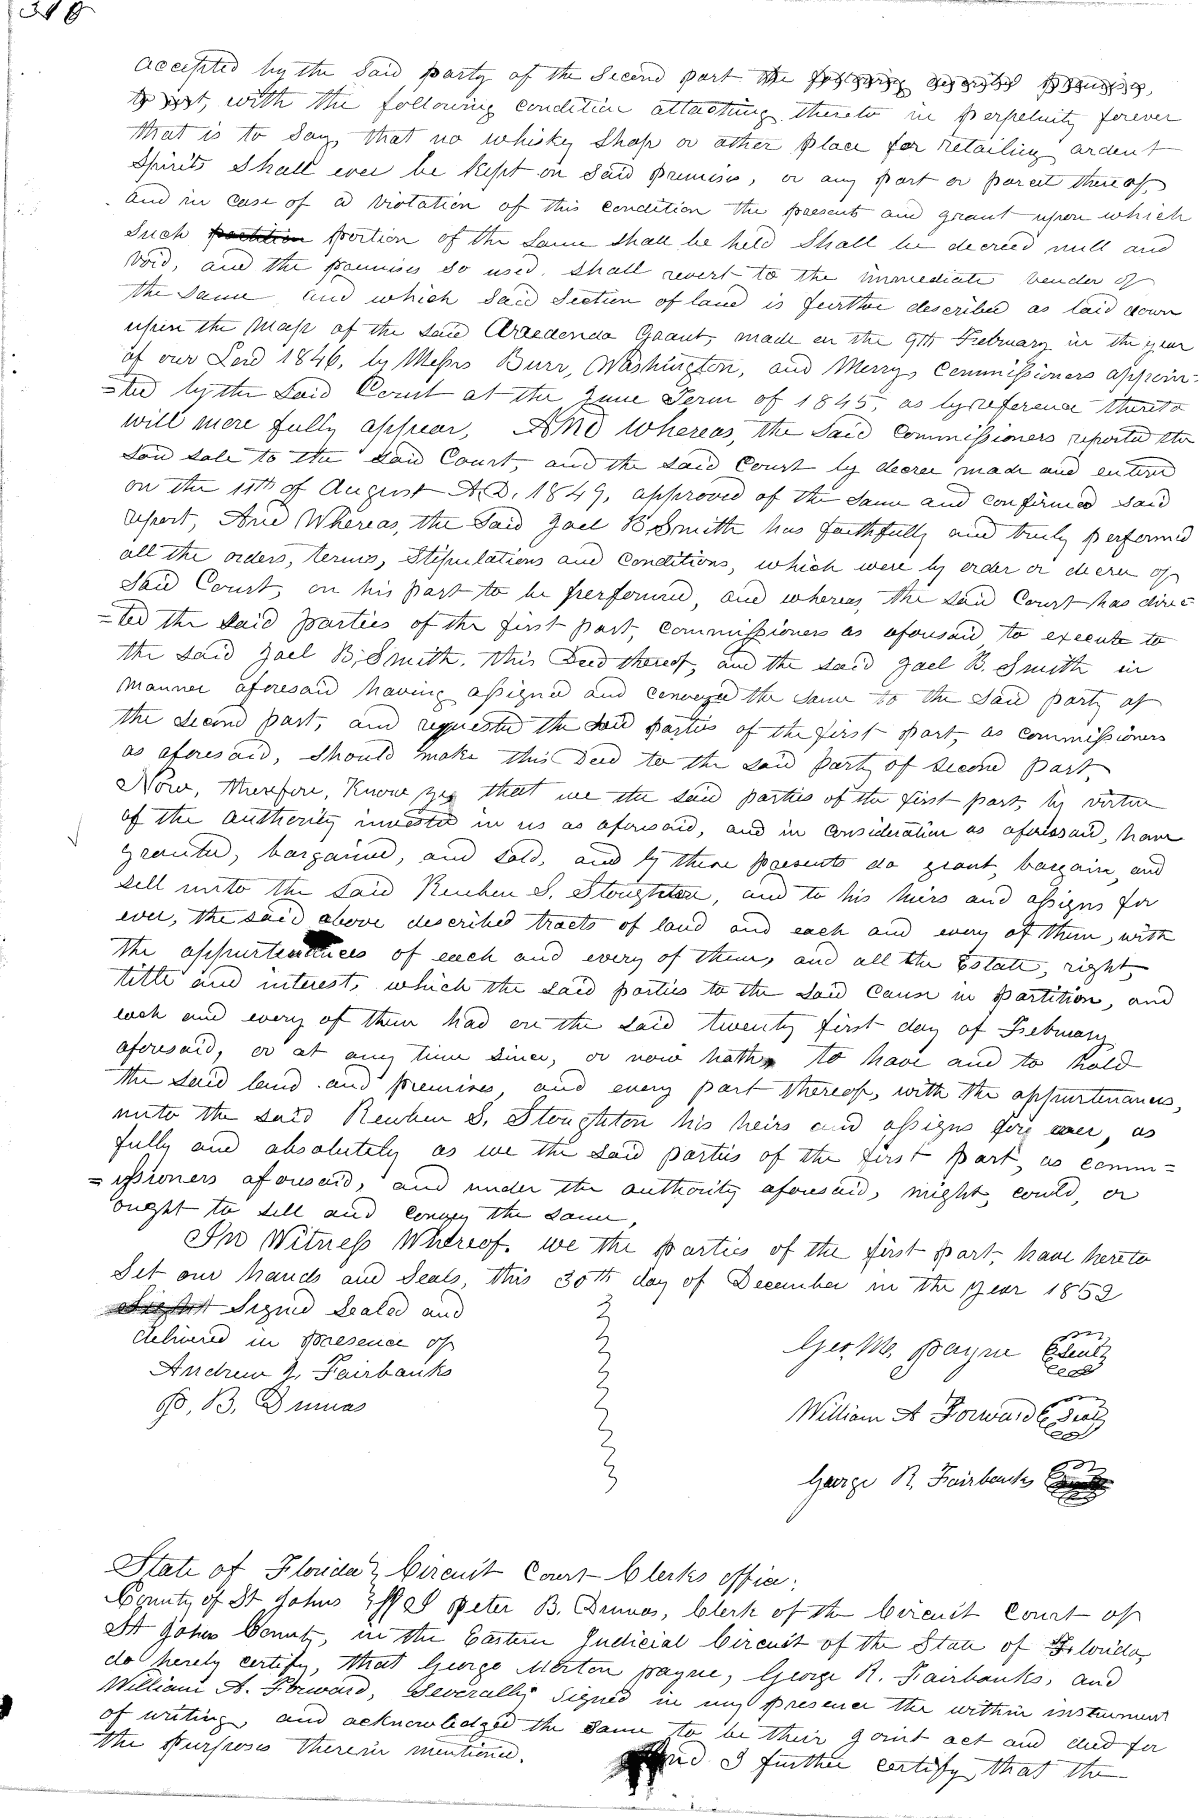 accepted by the said party of the second part the following described premises,
to wit, with the following condition attaching thereto in perpetuity forever
that is to say, that no whisky Shop or other Place for retailing ardent
Spirits Shall ever be kept on said premises, or any part or parcel thereof,
and in case of a violation of this condition the presents and grant upon which
such partition portion of the same shall be held Shall be decreed null and
void, and the premises so used shall revert to the immediate vender of
the same, and which said section of land is further described as laid down
upon the Map of the said Arredondo Grant, made on the 9th February in the year
of our Lord 1846, by Messrs Burr, Washington, and Merry, Commissioners appoin=
=ted by the said Court at the June Term of 1845, as by reference thereto
will more fully appear, And Whereas, the said Commissioners reported the
said sale to the said Court, and the said Court by decree made and entered
on the 11th of August A.D. 1849, approved of the same and confirmed said
report, And Whereas, the said Jael B. Smith has faithfully and truly performed
all the orders, terms, Stipulations and conditions, which were by order or decree of
said Court, on his part to be performed, and whereas, the said Court has direc=
=ted the said parties of the first part, commissioners as aforesaid, to execute to
the said Jael B. Smith, this Deed thereof, and the said Jael B. Smith in
manner aforesaid having assigned and conveyed the same to the said party of
the second part, and requested the said parties of the first part, as commissioners
as aforesaid, should make this Deed to the said Party of second part,
Now, therefore, Know ye, that we the said parties of the first part, by virtue
of the authority invested in us as aforesaid, and in consideration as aforesaid, have
granted, bargained, and sold, and by these presents do grant, bargain, and
sell unto the said Reuben S. Stoughton, and to his heirs and assigns for
ever, the said above described tracts of land and each and every of them, with
the appurtenances of each and every of them, and all the Estate, right,
title and interest, which the said parties to the said cause in partition, and
each and every of them had on the said twenty first day of February
aforesaid, or at any time since, or now hath, to have and to hold
the said land and premises, and every part thereof, with the appurtenances,
unto the said Reuben S. Stoughton his heirs and assigns for ever, as
fully and absolutely as we the said parties of the first part, as comm=
=issioners aforesaid, and under the authority aforesaid, might, could, or
ought to sell and convey the same,
In Witness Whereof, we the parties of the first part, have hereto
Set our hands and Seals, this 30th day of December in the year 1852
Signed Sealed and
delivered in presence of
Andrew J. Fairbanks
P. B. Dumas
Geo. M. Payne Seal
William A Forward Seal
George R. Fairbanks
State of Florida Circuit Court Clerks office;
County of St Johns SS I Peter B. Dumas, Clerk of the Circuit Court of
St Johns County, in the Eastern Judicial Circuit of the State of Florida,
do hereby certify, that George Morton Payne, George R. Fairbanks, and
William A. Forward, Severally signed in my presence the within instrument
of writing, and acknowledged the same to be their joint act and deed for
the purposes therein mentioned. And I further certify, that the